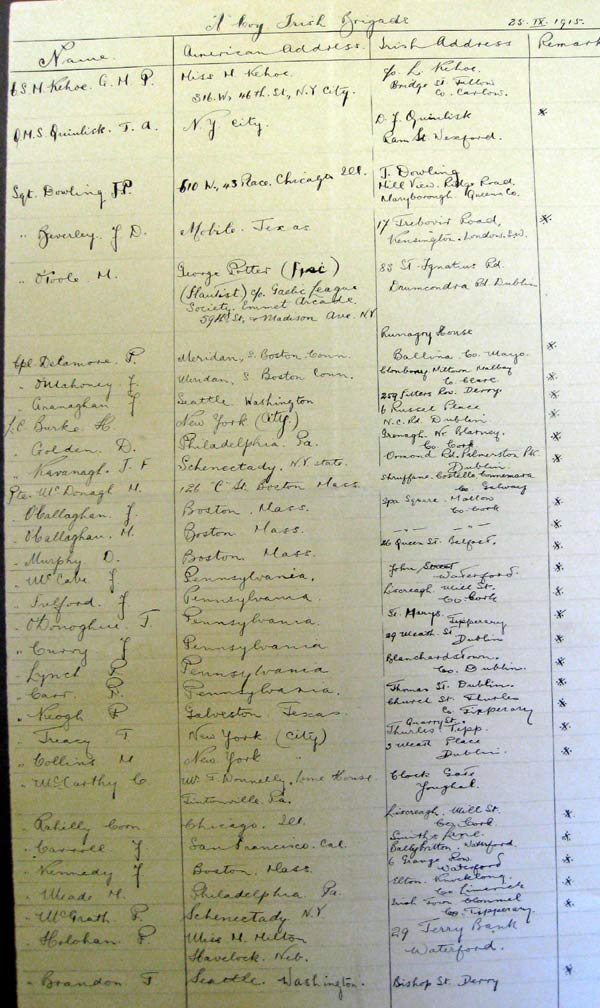 A Coy Irish Brigade 25. IX. 1915.
Name. American Address. Irish Address Remark
C.S.M. Kehoe. G. M. P. Miss M. Kehoe. c/o L. Kehoe.
316. W, 46th. St, N.Y City. Bridge St. Tullow
Co. Carlow.
Q.M.S. Quinlisk. T. A. N.Y. City. D. J. Quinlisk *
Ram St. Wexford.
Sgt. Dowling J.P. 610 W., 43 Place. Chicago Ill. J. Dowling
Mill View. Ridge Road.
Maryborough Queens Co.
" Beverley J D. Mobile. Texas 17 Trebovir Road, *
Kensington. London. S.W.
" O'Toole M. George Potter 83 St. Ignatius Rd.
(Flautist) c/o. Gaelic League Drumcondra Rd. Dublin
Society. Emmet Arcade.
59th. St, & Madison Ave. N.Y.
House
Cpl Delamore. P. Meridan, S. Boston. Conn. Ballina. Co. Mayo. *
" O'Mahoney J. Meridan, S. Boston Conn. Miltown Malbay *
Co. Clare
" Granaghan J Seattle Washington Row. Derry. *
L/C. Burke. H. New York (City.) 6 Russel Place *
N.C. Rd. Dublin
" Golden. D. Philadelphia. Pa. Grenagh. Nr Blarney. *
Co. Cork
" Kavanagh. J. F Schenectady. N.Y. state. Ormond Rd. Palmerston Pk. *
Dublin
Pte. McDonagh M. 126 "C" St. Boston Mass. Costello. Connemara
Co. Galway
" O'Callaghan. J. Boston. Mass. Spa Square. Mallow *
Co Cork
" O'Callaghan. M. Boston Mass. — " — — " — *
" Murphy D. Boston Mass. 26 Queen St. Belfast. *
" McCabe J Pennsylvania. John Street *
Waterford
" Telford. J Pennsylvania. Liscreagh. Mill St. *
Co. Cork
" O'Donoghue. T. Pennsylvania. St. Marys. Tipperary *
" Curry J Pennsylvania 29 Meath St *
Dublin
" Lynch P Pennsylvania Blanchardstown. *
Co. Dublin.
" Carr. P. Pennsylvania. Thomas St. Dublin. *
" Keogh P Galveston. Texas Church St. Thurles *
Co. Tipperary
" Treacy T New York (City) Quarry St. *
Thurles Tipp.
" Collins M New York " 3 Meath Place *
Dublin.
" McCarthy C Mr. T. Donnelly, Lime House. Clock Gate
Pa. Youghal.
" Rahilly Corn Chicago. Ill. Liscreagh. Mill St. *
Co. Cork
" Carroll J San Francisco. Cal. Smiths Lane. *
Ballybricken. Waterford.
" Kennedy J Boston. Mass. 6 Grange Row *
Waterford
" Meade M. Philadelphia Pa. Elton. Knocklong. *
Co Limerick
" McGrath P. Schenectady N.Y. Irish Town Clonmel *
Co. Tipperary.
" Holohan P. Miss M. Hilton 29 Ferry Bank
Havelock. Neb. Waterford.
" Brandon T Seattle. Washington. Bishop St. Derry *